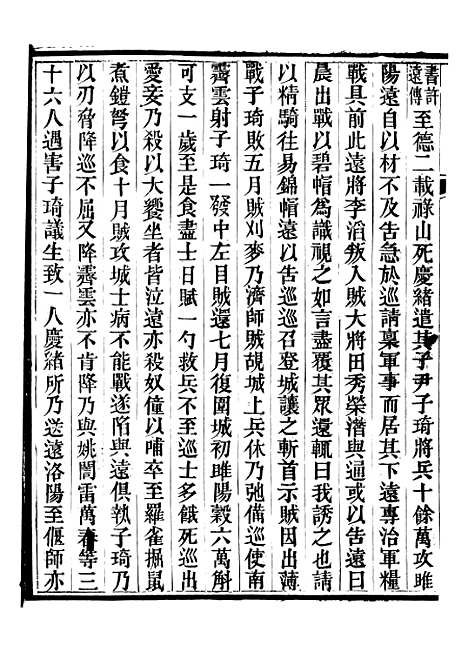 書許遠傳至德二載祿山死慶緒遣其子尹子琦將兵十餘萬攻睢
陽遠自以材不及吿急於巡請稟軍事而居其下遠專治軍糧
戰具前此遠將李滔叛入賊大將田秀榮潛與通或以吿遠曰
晨出戰以碧帽爲識視之如言盡覆其眾還輒曰我誘之也請
以精騎往易錦帽遠以吿巡巡召登城讓之斬首示賊因出薄
戰子琦敗五月賊刈麥乃濟師賊覘城上兵休乃弛備巡使南
霽雲射子琦一發中左目賊還七月復圍城初睢陽穀六萬斛
可支一歲至是食盡士日賦一勺救兵不至士多餓死巡出
愛妾乃殺以大饗坐者皆泣遠亦殺奴僮以哺卒至羅雀掘鼠
煮鎧弩以食十月賊攻城士病不能戰遂陷與遠俱執子琦乃
以刃脅降巡不屈又降霽雲亦不肯降乃與姚誾雷萬春等三
十六人遇害子琦議生致一人慶緒所乃送遠洛陽至偃師亦